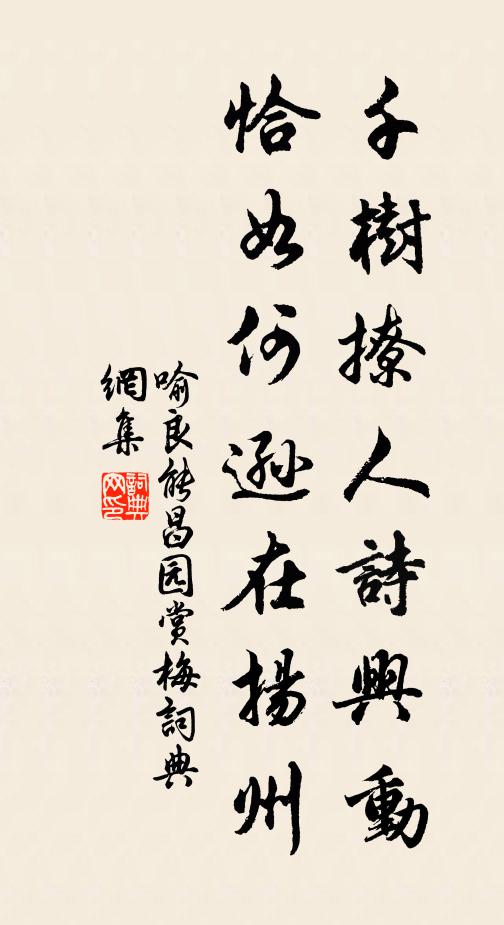 千樹撩人詩興動
恰如何遜在揚州
喻良能昌园赏梅詞典
網集
詞典网印